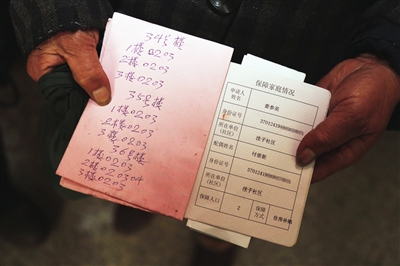 34号楼
1楼0203
2楼0203
3楼0203
35号楼
1楼0203
2楼0203
3楼0203
36号楼
1楼0203
2楼020304
3楼0203
保障家庭情况
申请人姓名
身份证号
所在单位(社区) 社区
配偶姓名
身份证号
所在单位(社区) 社区
保障人口 2 保障方式